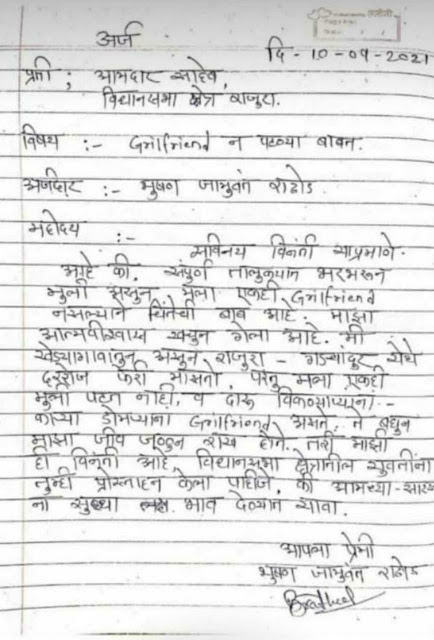 अर्ज
दि - 10-09-2021
प्रती ; आमदार साहेब,
विधानसभा क्षेत्र राजुरा.
विषय :- Grilfriend न पटण्या बाबत.
अर्जदार :- भुषण जामुवंत राठोड
महोदय :-
सविनय विनंती याप्रमाणे
आहे की. संपुर्ण तालुक्यात भरभरून
मुली असुन मला एकही Grilfriend
नसल्याने चिंतेची बाब आहे. माझा
आत्मवीश्वास खचुन गेला आहे. मी
खेड्यागावातुन असुन राजुरा - गडचांदुर येथे
दररोज फेरी मारतो, परंतु मला एकही
मुली पटत नाही, व दारू विकणाऱ्याना -
काऱ्या डोमड्याना Grilfriend असते. ते बघुन
माझा जीव जळुन राख होतो. तरी माझी
ही विनंती आहे, विधानसभा क्षेत्रातील युवतींना
तुम्ही प्रोत्साहन केला पाहिजे, की आमच्या-सारख्या
ना सुध्दा भाव देण्यात यावा.
आपला प्रेमी
भुषण जामुवंत राठोड